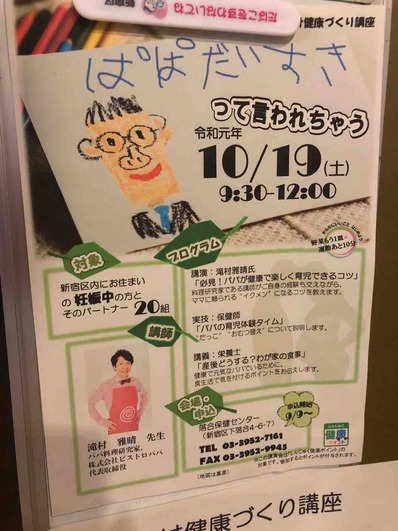 たばこをすわないでね
健康づくり講座
ぱぱだいすき
って言われちゃう
令和元年
10/19(土)
9:30-12:00
野菜もう1皿
運動あと10分
対象
新宿区内にお住まい
の妊娠中の方と
そのパートナー 20組
プログラム
講演:滝村雅晴氏
「必見!パパが健康で楽しく育児できるコツ」
料理研究家である講師がご自身の経験も交えながら、
ママに頼られる"イクメン"になるコツを教えます。
実技:保健師
「パパの育児体験タイム」
"だっこ" "おむつ替え"について説明します。
講義:栄養士
「産後どうする?わが家の食事」
健康で元気なパパでいるために、
食生活で気を付けるポイントをお伝えします。
講師
滝村 雅晴 先生
パパ料理研究家、
株式会社ビストロパパ
代表取締役
会場・申込
落合保健センター
(新宿区下落合4-6-7)
TEL 03-3952-7161
FAX 03-3952-9943
(地図は裏面)
申込開始
9/9~
しんじゅく
健康
ポイント
※この講演会は「しんじゅく健康ポイント」の
対象です。参加するとポイントが付与されます。
健康づくり講座